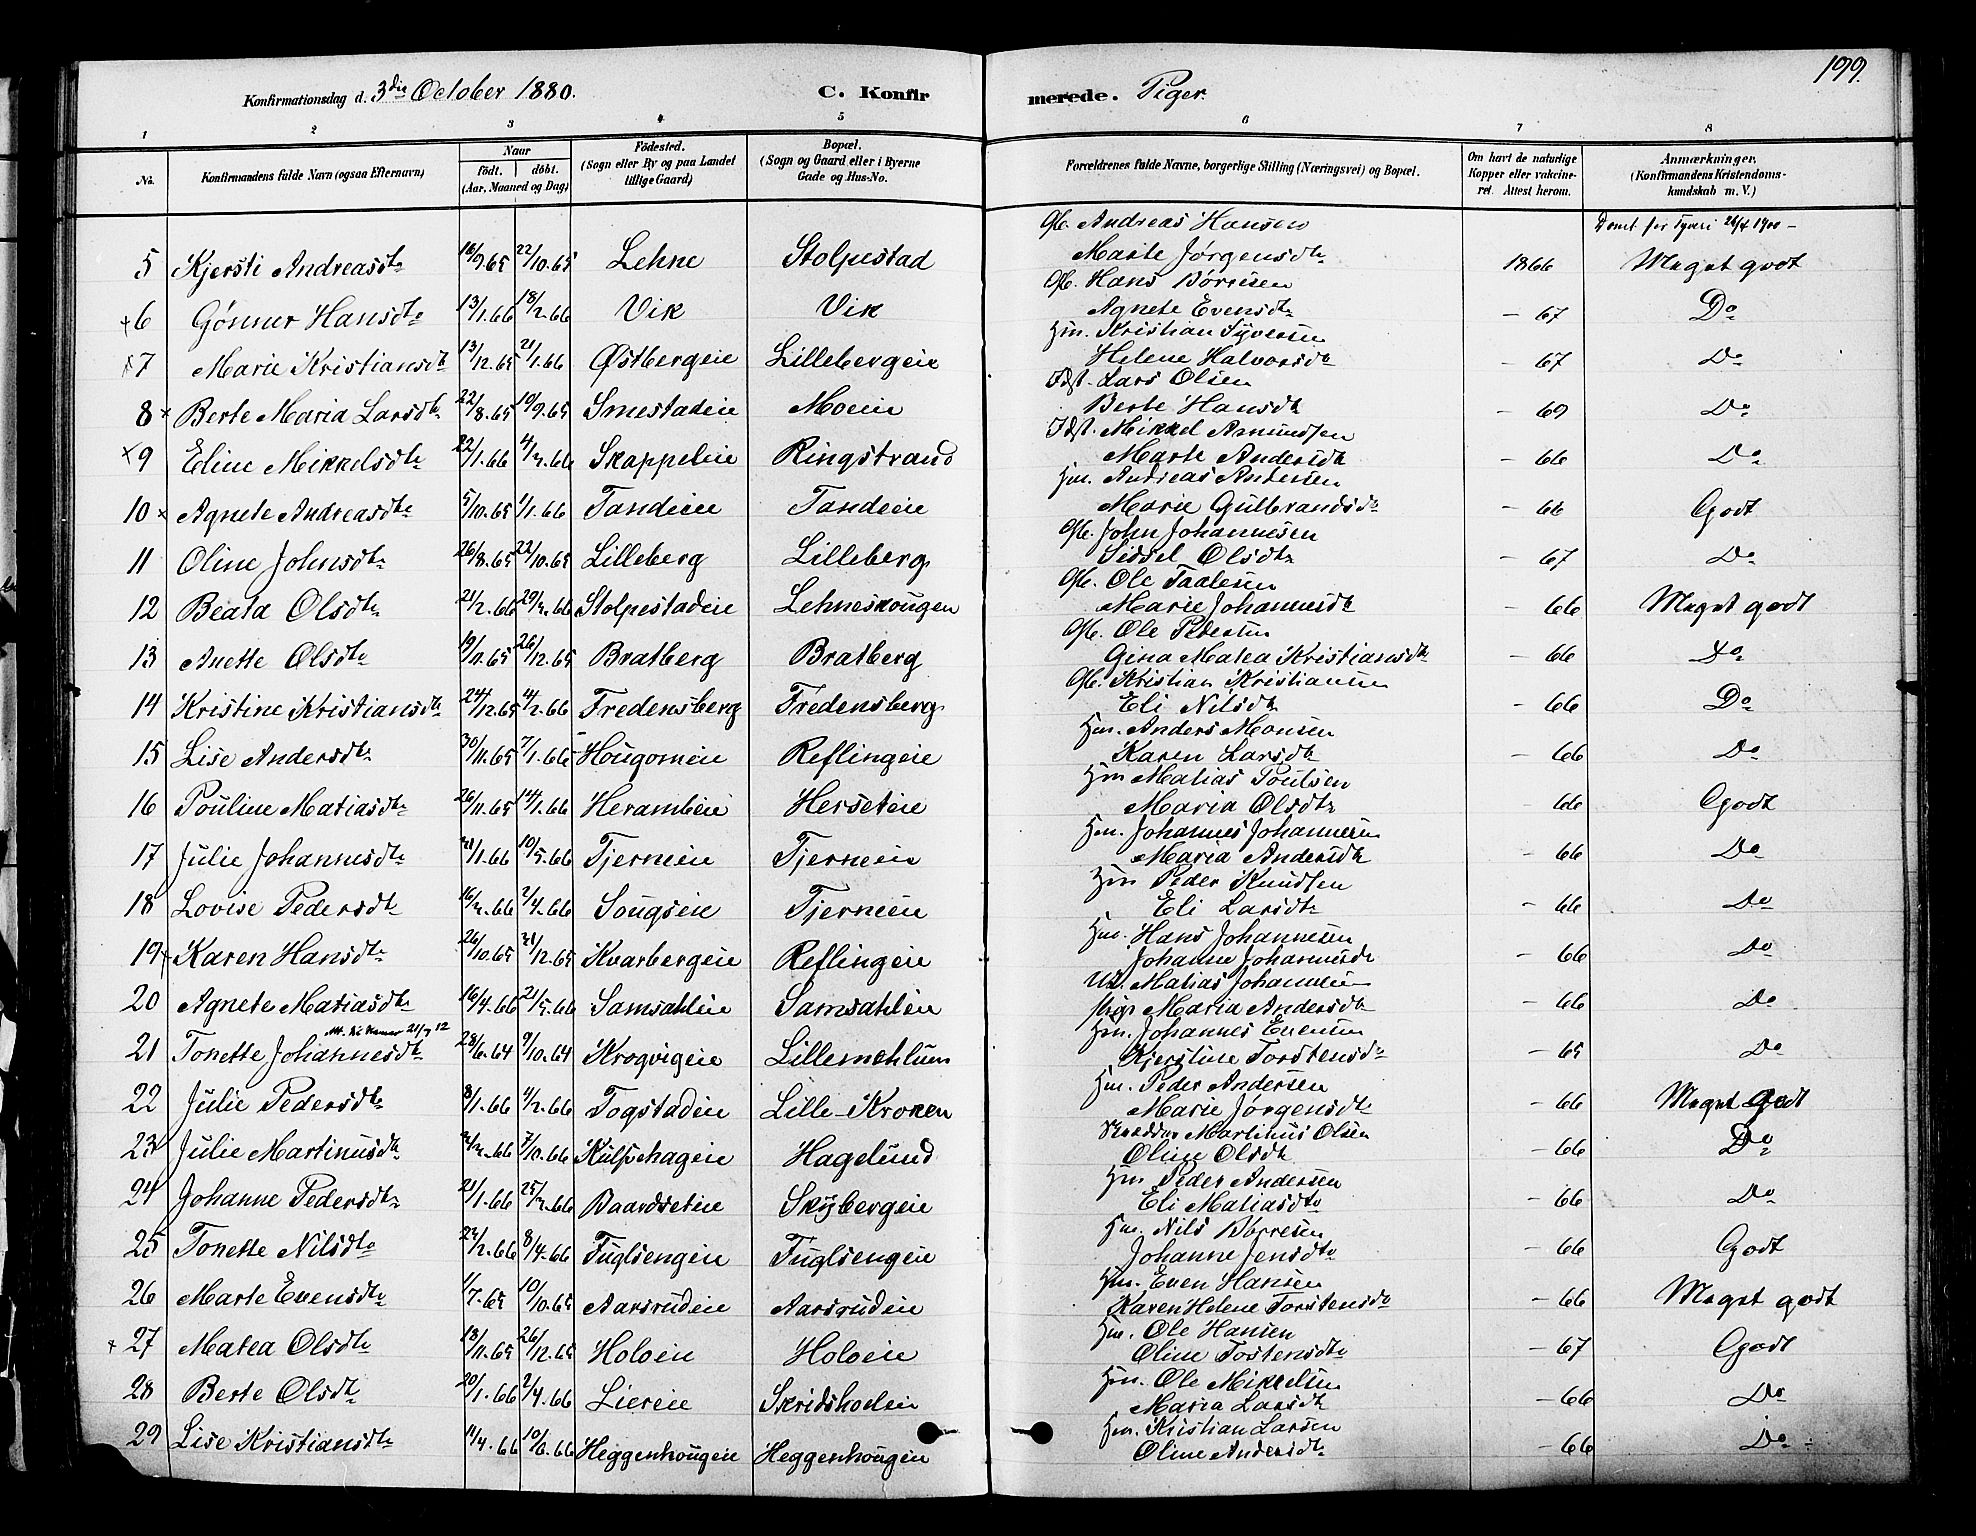 199.
Konfirmationsdag d. 3die October 1880. C. Konfirmerede. Piger.
1 2 3 4 5 6 7 8
No. Konfirmandens fulde Navn (ogsaa Efternavn) Naar födt. döbt. (Aar, Maaned og Dag) Födested. (Sogn eller By og paa Landet tillige Gaard) Bopæl. (Sogn og Gaard eller i Byerne Gade og Hus-No. Forældrenes fulde Navne, borgerlige Stilling (Næringsvei) og Bopæl. Om havt de naturlige Kopper eller vakcineret. Attest herom. Anmærkninger. (Konfirmandens Kristendomskundskab m. V.)
Gb. Andreas Hansen Dømt for Tyveri 26/4 1900 -
5 Kjersti Andreasdtr 16/9.65 22/10.65 Lehne Stolpestad Marte Jørgensdtr 1866 Meget godt
Gb. Hans Børresen
+6 Gönner Hansdtr 13/1.66 18/2.66 Vik Vik Agnete Evensdtr - 67 Do
Hm. Kristian Syversen
7 Marie Kristiansdtr 13/12.65 21/1.66 Østbergeie Lillebergeie Helene Halvorsdtr - 67 Do
Idst. Lars Olsen
8 x Berte Maria Larsdtr 22/8.65 10/9.65 Smestadeie Moeie Berte Hansdtr - 69 Do
Idst. Mikkel Asmundsen
x9 Eline Mikkelsdtr 22/1.66 4/3.66 Skappeleie Ringstrand Marte Andersdtr - 66 Do
Hm. Andreas Andersen
10 x Agnete Andreasdtr 5/10.65 1/1.66 Tandeie Tandeie Marie Gulbrandsdtr - 66 Godt
Gb. John Johannesen
11 Oline Johnsdtr 26/8.65 22/10.65 Lilleberg Lilleberg Sidsel Olsdtr - 67 Do
Gb. Ole Taalesen
12 Beata Olsdtr 21/2.66 29/3.66 Stolpestadeie Lehneskougen Marie Johannesdtr - 66 Meget godt
Gb. Ole Pedersen
13 Anette Olsdtr 19/11.65 26/12.65 Bratberg Bratberg Gina Matea Kristiansdtr - 66 Do
Gb. Kristian Kristiansen
14 Kristine Kristiansdtr 24/12.65 4/2.66 Fredensberg Fredensberg Eli Nilsdtr - 66 Do
Hm. Anders Monsen
15 Lise Andersdtr 30/11.65 7/1.66 Hougomeie Reflingeie Karen Larsdtr - 66 Do
Hm Matias Poulsen
16 Pouline Matiasdtr 26/11.65 14/1.66 Herambeie Herseteie Maria Olsdtr - 66 Godt
Hm. Johannes Johannesen
17 Julie Johannesdtr 31/1.66 10/5.66 Tjerneie Tjerneie Maria Andersdtr - 66 Do
Hm Peder Knudsen
18 Lovise Pedersdtr 16/3.66 2/4.66 Sougseie Tjerneeie Eli Larsdtr - 66 Do
Hm. Hans Johannesen
19 Karen Hansdtr 26/10.65 31/12.65 Kvarbergeie Reflingeie Johanne Johannesdtr - 66 Do
Matias Johannesen
20 Agnete Matiasdtr 16/4.66 21/5.66 Samsahleie Samsahleie Pige Maria Andersdtr - 66 Do
Att. til Hamar 21/7 12 Hm. Johannes Evensen
21 Tonette Johannesdtr 28/6.64 9/10.64 Krogvigeie Lillemehlum Kjerstine Torstensdtr - 65 Do
Hm. Peder Andersen
22 Julie Pedersdtr 8/1.66 4/2.66 Togstadeie Lille-Kroken Marie Jørgensdtr - 66 Meget godt
Skrædder Martinus Olsen
23 Julie Martinusdtr 3/3.66 7/10.66 Kulsvehageie Hagelund Oline Olsdtr - 66 Do
Hm Peder Andersen
24 Johanne Pedersdtr 21/1.66 25/3.66 Baardseteie Skybergeie Eli Matiasdtr - 66 Do
Hm. Nils Børresen
25 Tonette Nilsdtr 22/2.66 8/4.66 Fuglsengeie Fuglsengeie Johanne Jensdtr - 66 Godt
Hm. Even Hansen
26 Marte Evensdtr 1/7.65 10/10.65 Aarsrudeie Aarsrudeie Karen Helene Torstensdtr - 66 Meget godt
Hm. Ole Hansen
+ 27 Matea Olsdtr 13/11.65 26/12.65 Holoeie Holoeie Oline Tostensdtr - 67 Godt
Hm. Ole Mikkelsen
28 Berte Olsdtr 20/1.66 2/4.66 Liereie Skridshoeleie Maria Larsdtr - 66 Do
Hm. Kristian Larsen
29 Lise Kristiansdtr 14/4.66 10/6.66 Heggenhougeie Heggenhougeie Oline Andersdtr - 66 Do